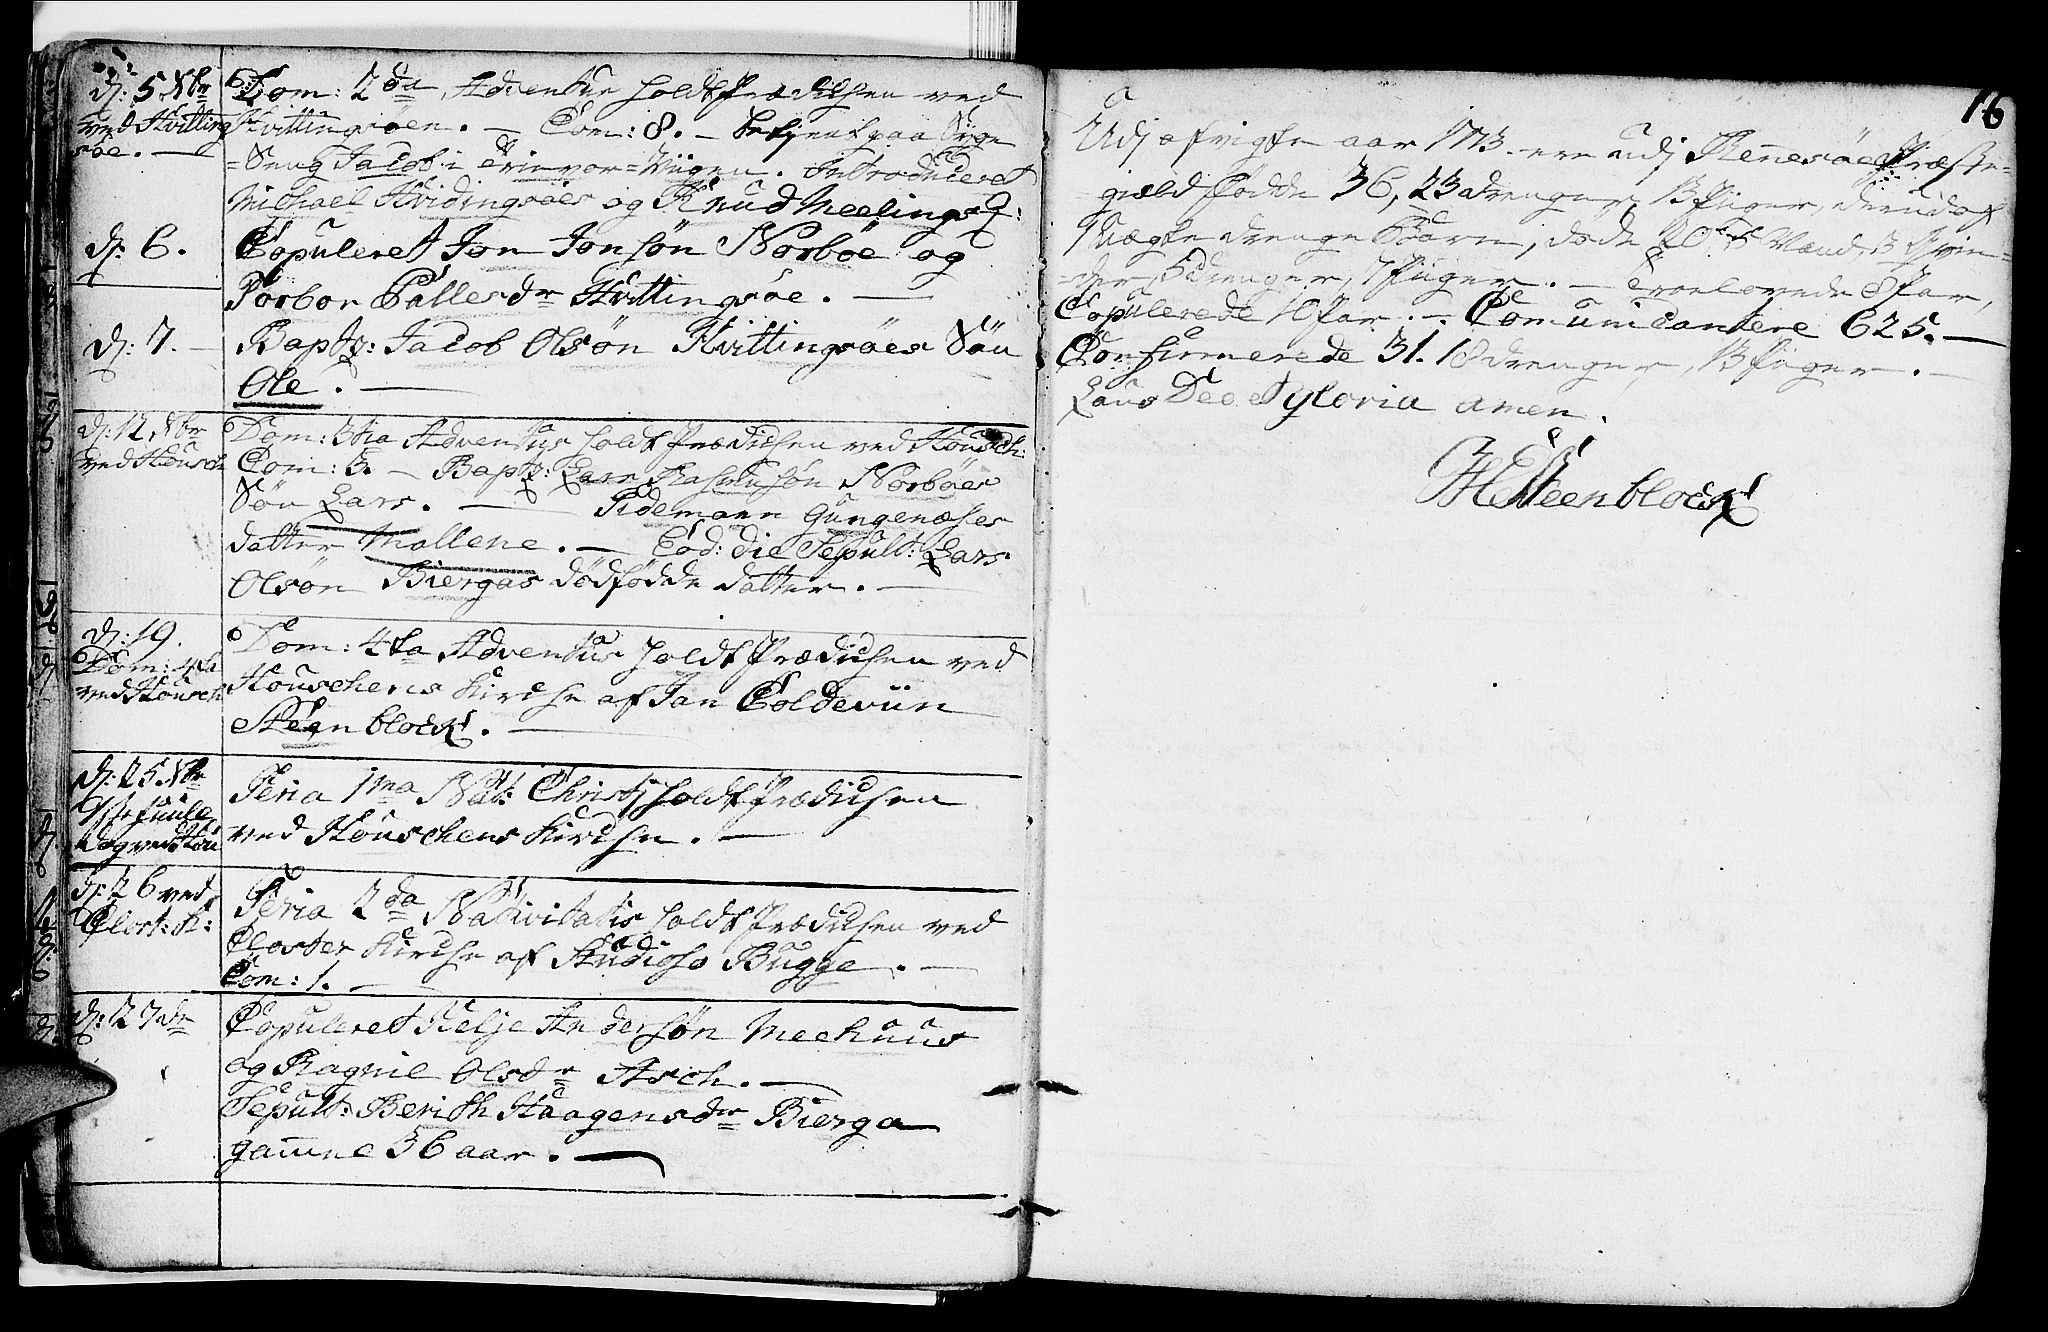 d: 5 Xbr
ved Hvitting
söe. —
Dom: 2da Adventus holdt Prædichen ved
Hvittingsöen. — Com: 8. — betjent paa Syge
=Seng Jacob i =Viigen. Introduceret
Michael Hvidingsöes og Knud Meelings Q:
d: 6.
Copuleret Jon Jonsön Norböe og
Torbor Pallesdr Hvittingsöe. —
d: 7. —
Bapt: Jacob Olsön Hvittingsöes Sön
Ole. —
d: 12 Xbr
ved Housch
Dom: 3tia Adventus holdt Prædichen ved Housch:
Com: 5. — Bapt: Lars Rasmusön Norböes
Sön Lars. — Tidemann Gungenæses
datter Mallene. — Eod: die Sepult: Lars
Olsön Biergas dödfödde datter. —
d: 19.
Dom: 4ta
ved Housch
Dom: 4ta Adventus holdt Prædichen ved
Houschens Kirche af Jan Coldeviin
Steenblock. —
d: 25 Xbr
1ste Juule
dag ved Hou
Feria 1ma Nat: Christj holdt Prædichen
ved Houschens Kirche. —
d: 26 ved
Clost: K:
Feria 2da Nativitatis holdt Prædichen ved
Closter Kirche af Studioso Bugge. —
Com: 1. —
d: 27de
Copuleret Helje Andersön Meehuus
og Ragnil Olsdr Asch. —
Sepult: Berith Haagensdr Bierga
gamme 36 aar. —
16
Udj afvigte aar 1773 ere udj Rennesöe Præste-
gield födde 36, 23 drenger, 13 Piger, deraf
1 Uægte drenge Barn, döde 20, 5 Mænd, 3 Qvin=
=der, 5 drenger, 7 Piger. — Trolovede 8 Par,
Copulerede 10 Par. — Communicantere 625. —
Confirmerede 31. 18 drenger, 13 Piger. —
Laus Deo et gloria amen.
Steenblock